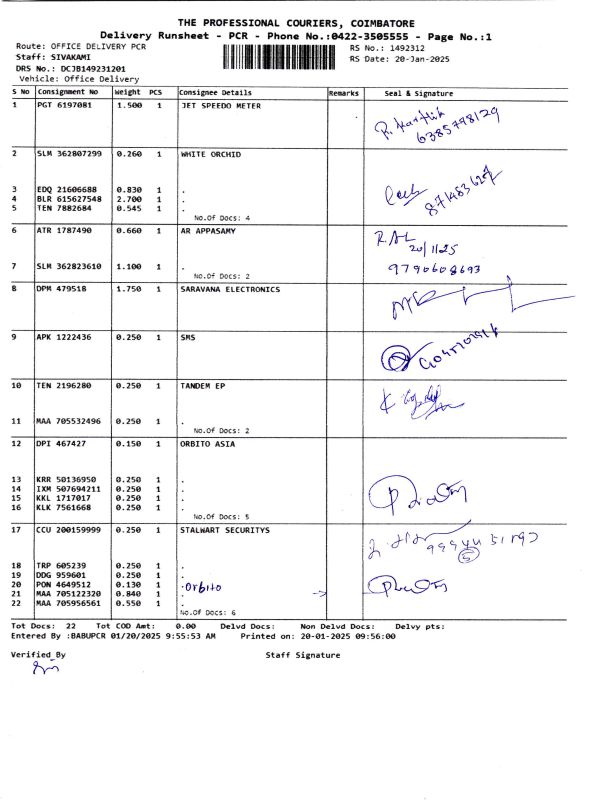 THE PROFESSIONAL COURIERS, COIMBATORE
Delivery Runsheet - PCR - Phone No.:0422-3505555 - Page No.:1
Route: OFFICE DELIVERY PCR
Staff: SIVAKAMI
DRS No.: DCJB149231201
Vehicle: Office Delivery
RS No.: 1492312
RS Date: 20-Jan-2025
S No Consignment No Weight PCS Consignee Details Remarks Seal & Signature
1 PGT 6197081 1.500 1 JET SPEEDO METER
R. Karthik
6385798129
2 SLM 362807299 0.260 1 WHITE ORCHID
3 EDQ 21606688 0.830 1 .
4 BLR 615627548 2.700 1 .
5 TEN 7882684 0.545 1 .
No.Of Docs: 4
6 ATR 1787490 0.660 1 AR APPASAMY
20/1/25
7 SLM 362823610 1.100 1 .
9790608693
No.Of Docs: 2
8 DPM 479518 1.750 1 SARAVANA ELECTRONICS
9 APK 1222436 0.250 1 SMS
10 TEN 2196280 0.250 1 TANDEM EP
11 MAA 705532496 0.250 1 .
No.Of Docs: 2
12 DPI 467427 0.150 1 ORBITO ASIA
13 KRR 50136950 0.250 1 .
14 IXM 507694211 0.250 1 .
15 KKL 1717017 0.250 1 .
16 KLK 7561668 0.250 1 .
No.Of Docs: 5
17 CCU 200159999 0.250 1 STALWART SECURITYS
5
18 TRP 605239 0.250 1 .
19 DDG 959601 0.250 1 .
20 PON 4649512 0.130 1 . Orbito
21 MAA 705122320 0.840 1 .
22 MAA 705956561 0.550 1 .
No.Of Docs: 6
Tot Docs: 22 Tot COD Amt: 0.00 Delvd Docs: Non Delvd Docs: Delvy pts:
Entered By :BABUPCR 01/20/2025 9:55:53 AM Printed on: 20-01-2025 09:56:00
Verified By Staff Signature